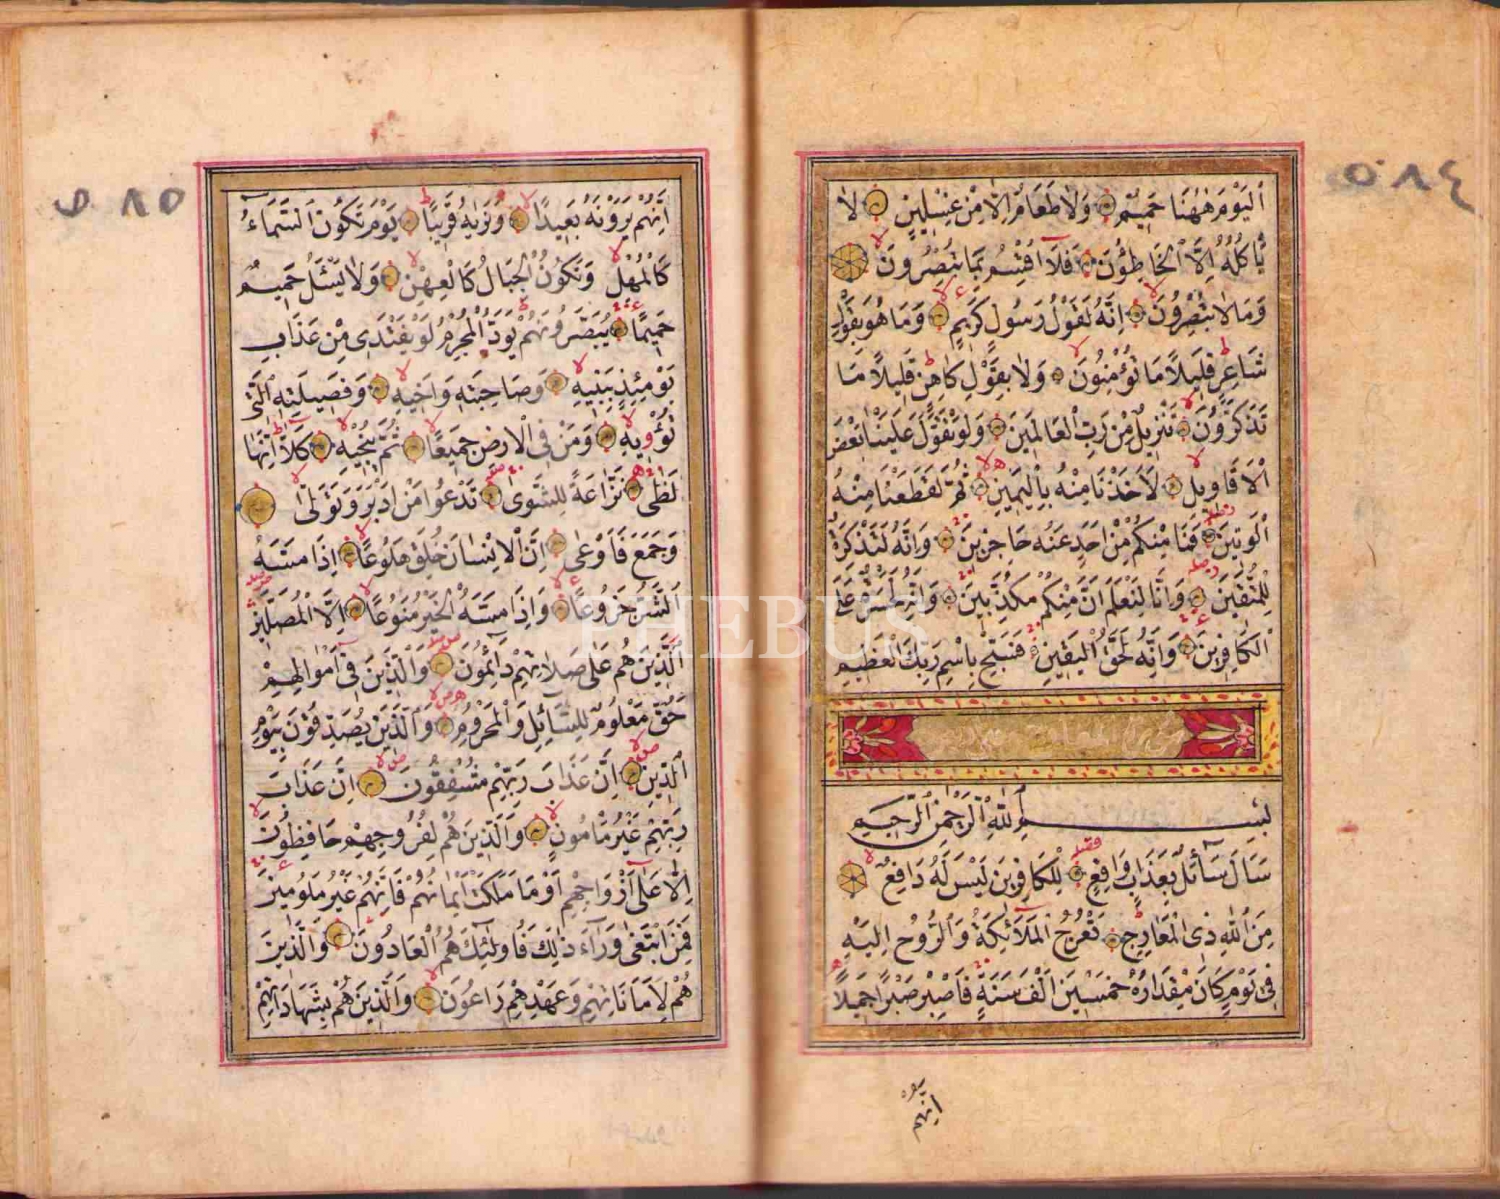 ٥٨٤
اَلْيَوْمَ هٰهُنَا حَمِيمٌ وَلَا طَعَامٌ اِلَّا مِنْ غِسْلِينٍ لَا
يَأْكُلُهُ اِلَّا الْخَاطِؤُنَ فَلَا اُقْسِمُ بِمَا تُبْصِرُونَ
وَمَا لَا تُبْصِرُونَ اِنَّهُ لَقَوْلُ رَسُولٍ كَرِيمٍ وَمَا هُوَ بِقَوْلِ
شَاعِرٍ قَلِيلًا مَا تُؤْمِنُونَ وَلَا بِقَوْلِ كَاهِنٍ قَلِيلًا مَا
تَذَكَّرُونَ تَنْزِيلٌ مِنْ رَبِّ الْعَالَمِينَ وَلَوْ تَقَوَّلَ عَلَيْنَا بَعْضَ
الْاَقَاوِيلِ لَاَخَذْنَا مِنْهُ بِالْيَمِينِ ثُمَّ لَقَطَعْنَا مِنْهُ
الْوَتِينَ فَمَا مِنْكُمْ مِنْ اَحَدٍ عَنْهُ حَاجِزِينَ وَاِنَّهُ لَتَذْكِرَةٌ
لِلْمُتَّقِينَ وَاِنَّا لَنَعْلَمُ اَنَّ مِنْكُمْ مُكَذِّبِينَ وَاِنَّهُ لَحَسْرَةٌ عَلَى
الْكَافِرِينَ وَاِنَّهُ لَحَقُّ الْيَقِينِ فَسَبِّحْ بِاسْمِ رَبِّكَ الْعَظِيمِ
بِسْمِ اللّٰهِ الرَّحْمٰنِ الرَّحِيمِ
سَاَلَ سَائِلٌ بِعَذَابٍ وَاقِعٍ لِلْكَافِرِينَ لَيْسَ لَهُ دَافِعٌ
مِنَ اللّٰهِ ذِى الْمَعَارِجِ تَعْرُجُ الْمَلَائِكَةُ وَالرُّوحُ اِلَيْهِ
فِى يَوْمٍ كَانَ مِقْدَارُهُ خَمْسِينَ اَلْفَ سَنَةٍ فَاصْبِرْ صَبْرًا جَمِيلًا
اِنَّهُمْ يَرَوْنَهُ
٥٨٥
اِنَّهُمْ يَرَوْنَهُ بَعِيدًا وَنَرٰيهُ قَرِيبًا يَوْمَ تَكُونُ السَّمَاءُ
كَالْمُهْلِ وَتَكُونُ الْجِبَالُ كَالْعِهْنِ وَلَا يَسْـَٔلُ حَمِيمٌ
حَمِيمًا يُبَصَّرُونَهُمْ يَوَدُّ الْمُجْرِمُ لَوْ يَفْتَدِى مِنْ عَذَابِ
يَوْمِئِذٍ بِبَنِيهِ وَصَاحِبَتِهِ وَاَخِيهِ وَفَصِيلَتِهِ الَّتِى
تُؤْوِيهِ وَمَنْ فِى الْاَرْضِ جَمِيعًا ثُمَّ يُنْجِيهِ كَلَّا اِنَّهَا
لَظٰى نَزَّاعَةً لِلشَّوٰى تَدْعُوا مَنْ اَدْبَرَ وَتَوَلّٰى
وَجَمَعَ فَاَوْعٰى اِنَّ الْاِنْسَانَ خُلِقَ هَلُوعًا اِذَا مَسَّهُ
الشَّرُّ جَزُوعًا وَاِذَا مَسَّهُ الْخَيْرُ مَنُوعًا اِلَّا الْمُصَلِّينَ
الَّذِينَ هُمْ عَلٰى صَلَاتِهِمْ دَائِمُونَ وَالَّذِينَ فِى اَمْوَالِهِمْ
حَقٌّ مَعْلُومٌ لِلسَّائِلِ وَالْمَحْرُومِ وَالَّذِينَ يُصَدِّقُونَ بِيَوْمِ
الدِّينِ اِنَّ عَذَابَ رَبِّهِمْ مُشْفِقُونَ اِنَّ عَذَابَ
رَبِّهِمْ غَيْرُ مَأْمُونٍ وَالَّذِينَ هُمْ لِفُرُوجِهِمْ حَافِظُونَ
اِلَّا عَلٰى اَزْوَاجِهِمْ اَوْ مَا مَلَكَتْ اَيْمَانُهُمْ فَاِنَّهُمْ غَيْرُ مَلُومِينَ
فَمَنِ ابْتَغٰى وَرَآءَ ذٰلِكَ فَاُولٰئِكَ هُمُ الْعَادُونَ وَالَّذِينَ
هُمْ لِاَمَانَاتِهِمْ وَعَهْدِهِمْ رَاعُونَ وَالَّذِينَ هُمْ بِشَهَادَاتِهِمْ
PHEBUS